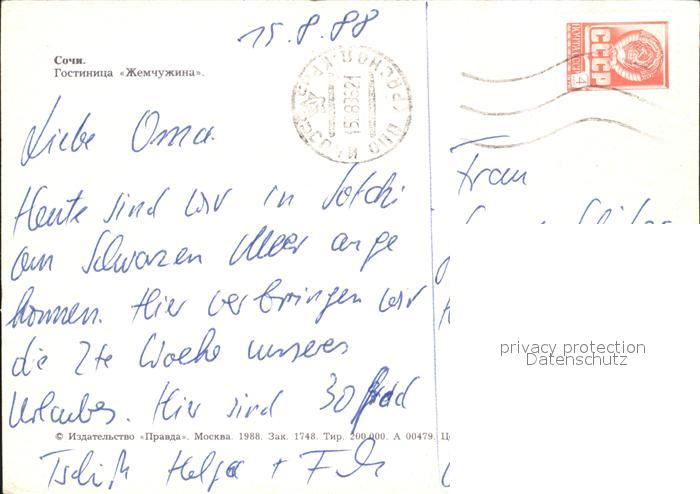 15.8.88
Сочи.
Гостиница «Жемчужина».
СССР
4
Liebe Oma.
Heute sind wir in Sotchi
am Schwarzen Meer ange
kommen. Hier verbringen wir
die 2te Woche unseres
Urlaubes. Hier sind 30 Grad
© Издательство «Правда». Москва. 1988. Зак. 1748. Тир. 200.000. А 00479.
Helga +
Frau
privacy protection
Datenschutz